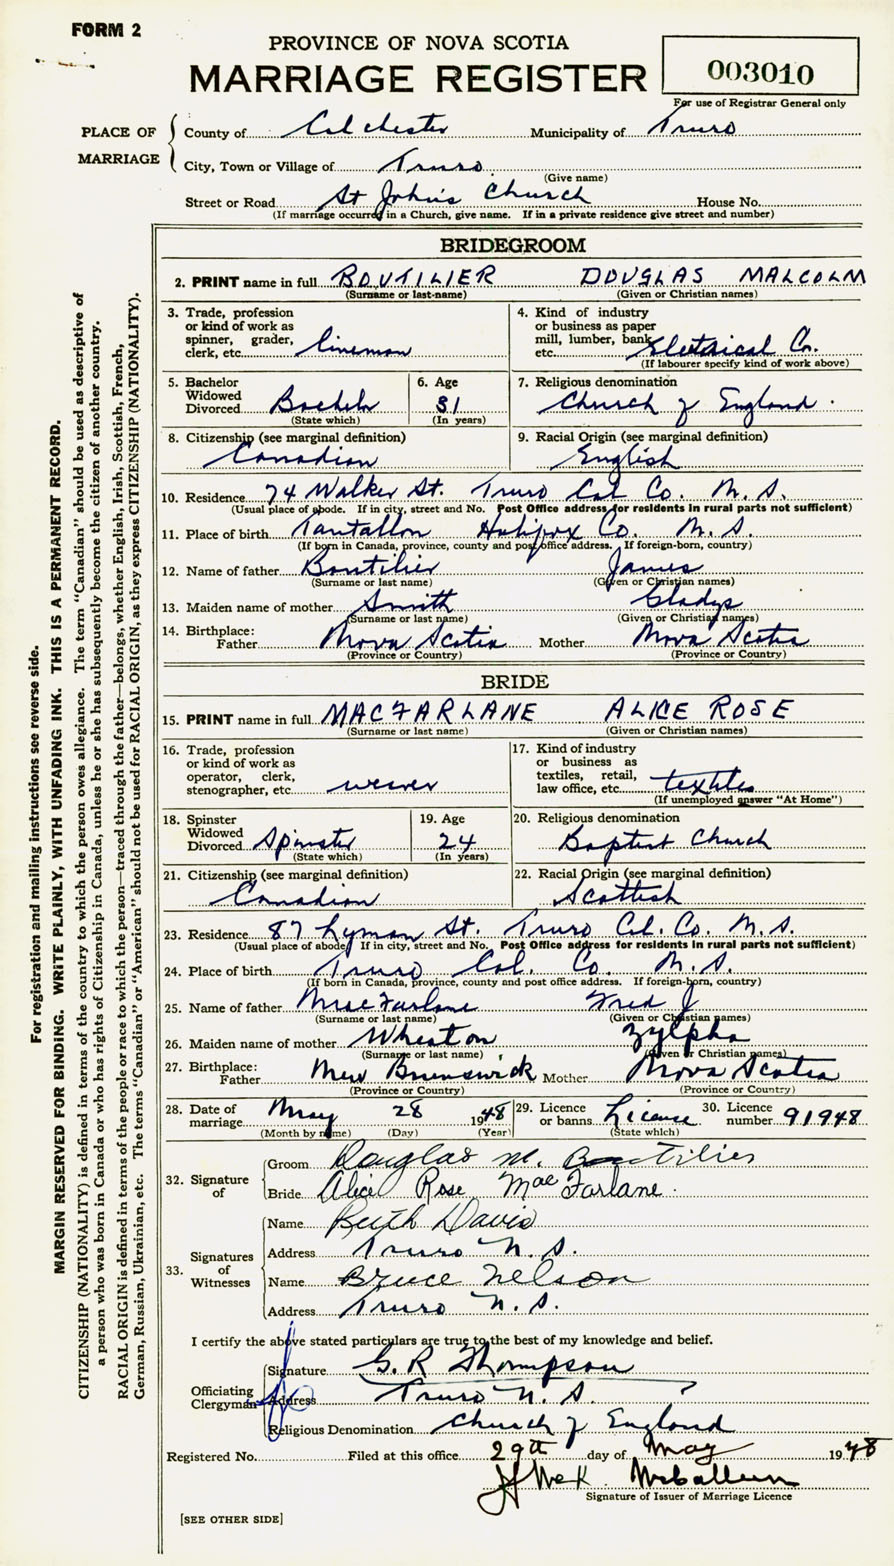 FORM 2
PROVINCE OF NOVA SCOTIA
MARRIAGE REGISTER
003010
For use of Registrar General only
PLACE OF MARRIAGE
County of Colchester Municipality of Truro
City, Town or Village of Truro
(Give name)
Street or Road St John's Church House No.
(If marriage occurred in a Church, give name. If in a private residence give street and number)
BRIDEGROOM
2. PRINT name in full BOUTILIER DOUGLAS MALCOLM
(Surname or last-name) (Given or Christian names)
3. Trade, profession or kind of work as spinner, grader, clerk, etc. lineman
4. Kind of industry or business as paper mill, lumber, bank, etc. Electrical Co.
(If labourer specify kind of work above)
5. Bachelor Widowed Divorced Bachelor
(State which)
6. Age 31
(In years)
7. Religious denomination
Church of England.
8. Citizenship (see marginal definition)
Canadian
9. Racial Origin (see marginal definition)
English
10. Residence 74 Walker St. Truro Col Co. N.S.
(Usual place of abode. If in city, street and No. Post Office address for residents in rural parts not sufficient)
11. Place of birth Tantallon Halifax Co. N.S.
(If born in Canada, province, county and post office address. If foreign-born, country)
12. Name of father Boutilier James
(Surname or last name) (Given or Christian names)
13. Maiden name of mother Smith Gladys
(Surname or last name) (Given or Christian names)
14. Birthplace:
Father Nova Scotia Mother Nova Scotia
(Province or Country) (Province or Country)
BRIDE
15. PRINT name in full MACFARLANE ALICE ROSE
(Surname or last name) (Given or Christian names)
16. Trade, profession or kind of work as operator, clerk, stenographer, etc. weaver
17. Kind of industry or business as textiles, retail, law office, etc. textiles
(If unemployed answer "At Home")
18. Spinster Widowed Divorced Spinster
(State which)
19. Age 24
(In years)
20. Religious denomination
Baptist Church
21. Citizenship (see marginal definition)
Canadian
22. Racial Origin (see marginal definition)
Scottish
23. Residence 87 Lyman St. Truro Col. Co. N.S.
(Usual place of abode. If in city, street and No. Post Office address for residents in rural parts not sufficient)
24. Place of birth Truro Col. Co. N.S.
(If born in Canada, province, county and post office address. If foreign-born, country)
25. Name of father MacFarlane Fred J
(Surname or last name) (Given or Christian names)
26. Maiden name of mother Wheaton Zylpha
(Surname or last name) (Given or Christian names)
27. Birthplace:
Father New Brunswick Mother Nova Scotia
(Province or Country) (Province or Country)
28. Date of marriage May 28 1948
(Month by name) (Day) (Year)
29. Licence or banns License
(State which)
30. Licence number 91948
32. Signature of
Groom Douglas M. Boutilier
Bride Alice Rose MacFarlane.
33. Signatures of Witnesses
Name Ruth Davis
Address Truro N.S.
Name Bruce Nelson
Address Truro N.S.
I certify the above stated particulars are true to the best of my knowledge and belief.
Officiating Clergyman
Signature G. R Thompson
Address Truro N.S.
Religious Denomination Church of England
Registered No. Filed at this office 29th day of May 1948
Signature of Issuer of Marriage Licence
[SEE OTHER SIDE]
For registration and mailing instructions see reverse side.
MARGIN RESERVED FOR BINDING. WRITE PLAINLY, WITH UNFADING INK. THIS IS A PERMANENT RECORD.
CITIZENSHIP (NATIONALITY) is defined in terms of the country to which the person owes allegiance. The term "Canadian" should be used as descriptive of
a person who was born in Canada or who has rights of Citizenship in Canada, unless he or she has subsequently become the citizen of another country.
RACIAL ORIGIN is defined in terms of the people or race to which the person—traced through the father—belongs, whether English, Irish, Scottish, French,
German, Russian, Ukrainian, etc. The terms "Canadian" or "American" should not be used for RACIAL ORIGIN, as they express CITIZENSHIP (NATIONALITY).